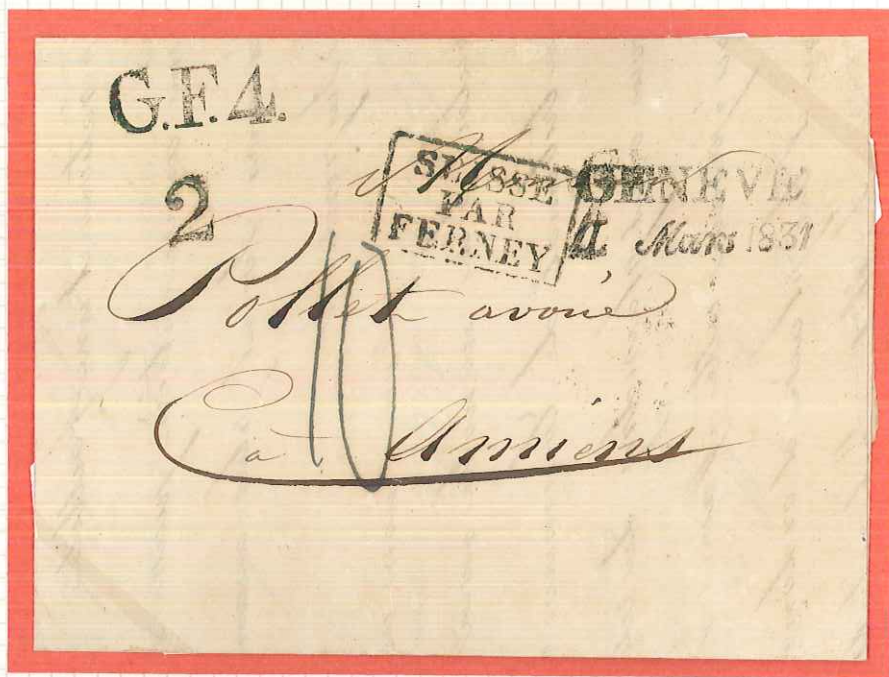 G.F.4.
2
SUISSE
PAR
FERNEY
GENEVE
Mars 1831
Pollet avoué
10
à Amiens